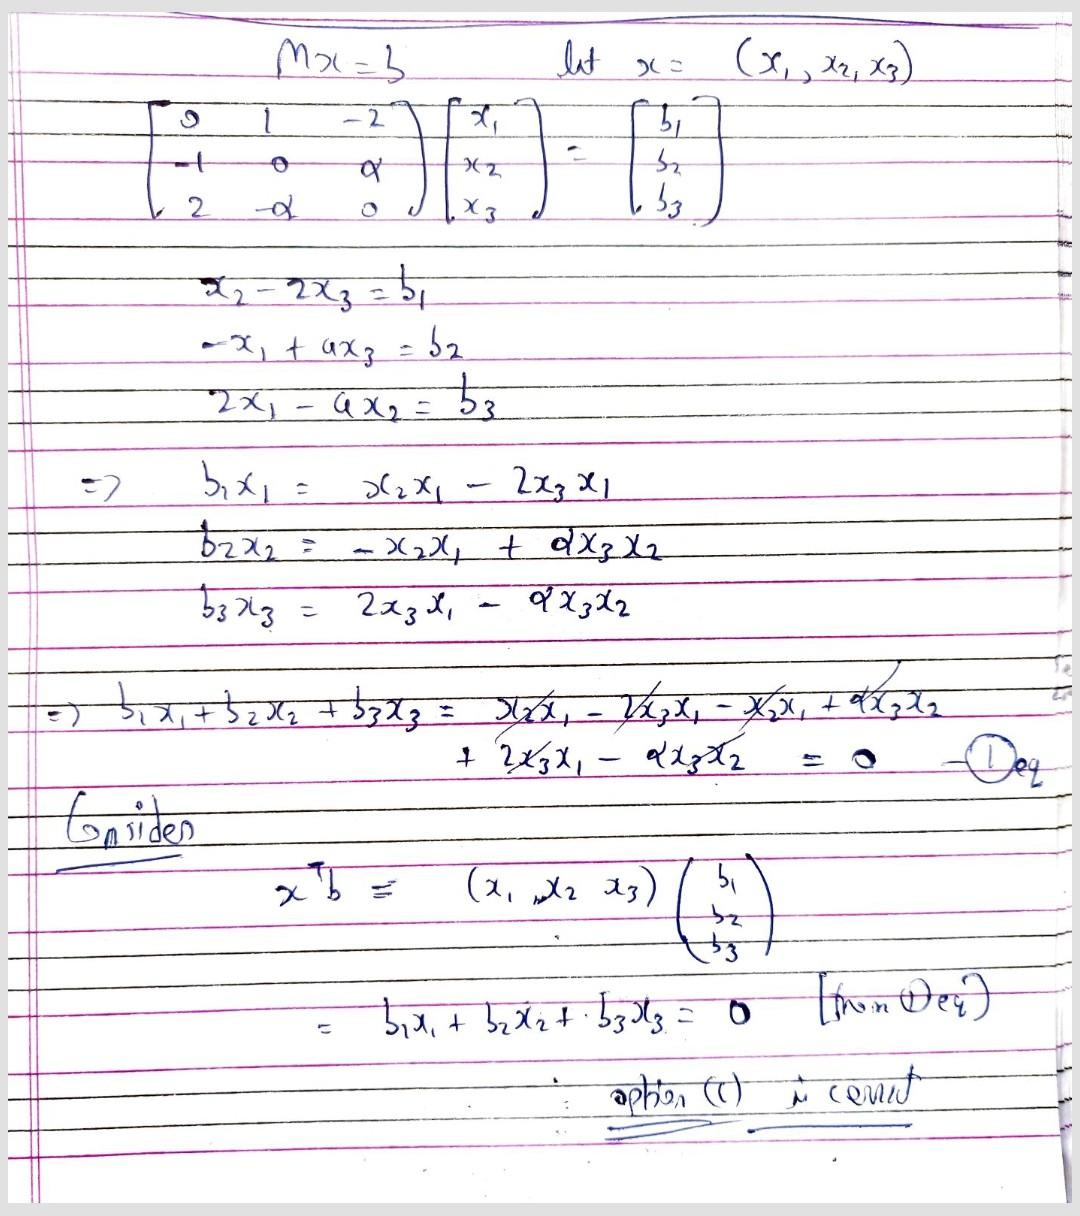 Mx = b let x = (x₁, x₂, x₃)
[0 1 -2] [x₁] = [b₁]
[-1 0 α] [x₂] [b₂]
[2 -α 0] [x₃] [b₃]
x₂ - 2x₃ = b₁
-x₁ + αx₃ = b₂
2x₁ - αx₂ = b₃
=> b₁x₁ = x₂x₁ - 2x₃x₁
b₂x₂ = -x₂x₁ + αx₃x₂
b₃x₃ = 2x₃x₁ - αx₃x₂
=> b₁x₁ + b₂x₂ + b₃x₃ = x₂x₁ - 2x₃x₁ - x₂x₁ + αx₃x₂
+ 2x₃x₁ - αx₃x₂ = 0 - ① eq
Consider
xᵀb = (x₁ x₂ x₃) (b₁
b₂
b₃)
= b₁x₁ + b₂x₂ + b₃x₃ = 0 [from ① eq]
∴ option (c) is correct